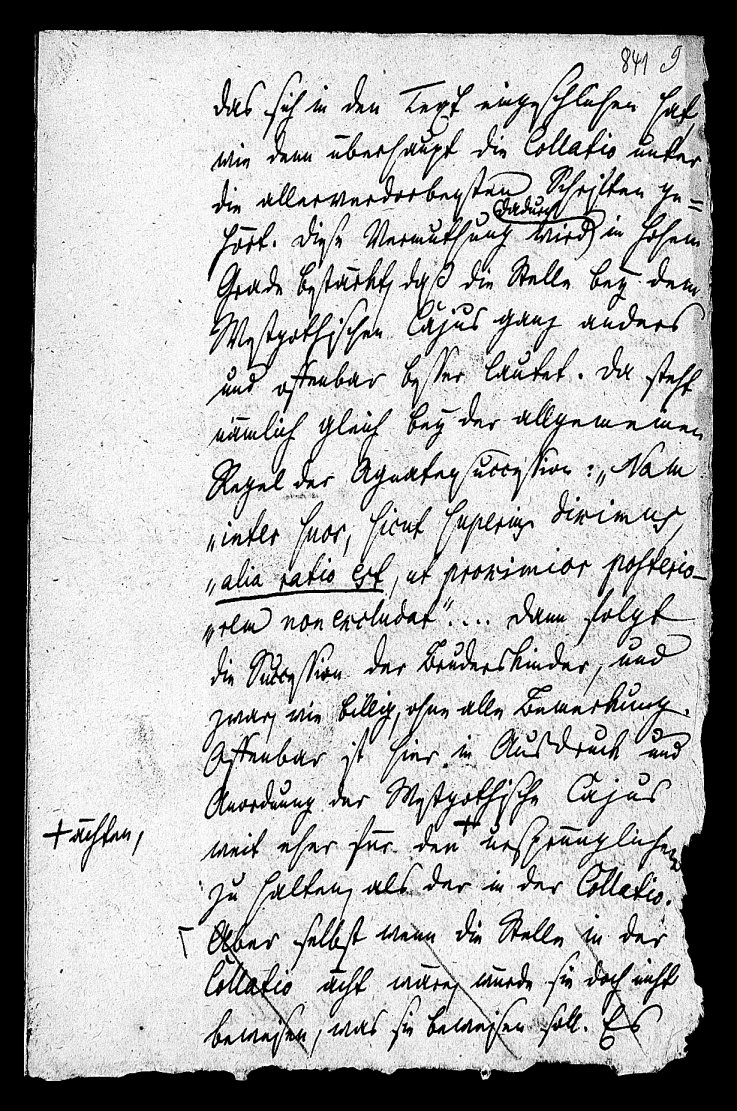 841 9
das sich in den Text eingeschlichen hat,
wie denn überhaupt die Collatio unter
die allerverdorbensten Schriften ge=
dadurch
hört. Diese Vermuthung wird in hohem
Grade bestärkt, daß die Stelle bey dem
Westgothischen Cajus ganz anders
und offenbar besser lautet. Da steht
nämlich gleich bey der allgemeinen
Regel der Agnatensuccession: „Nam
„inter suos, sicut superius diximus,
„alia ratio est, ut proximior posterio-
„rem non excludat“.... Dann folgt
die Succession der Bruderskinder, und
zwar, wie billig, ohne alle Bemerkung.
Offenbar ist hier in Ausdruck und
Anordnung der Westgothische Cajus
weit eher für den + ursprünglichen
+ ächten,
zu halten, als der in der Collatio.
Aber selbst wenn die Stelle in der
Collatio ächt wäre, würde sie doch nicht
beweisen, was sie beweisen soll. Es